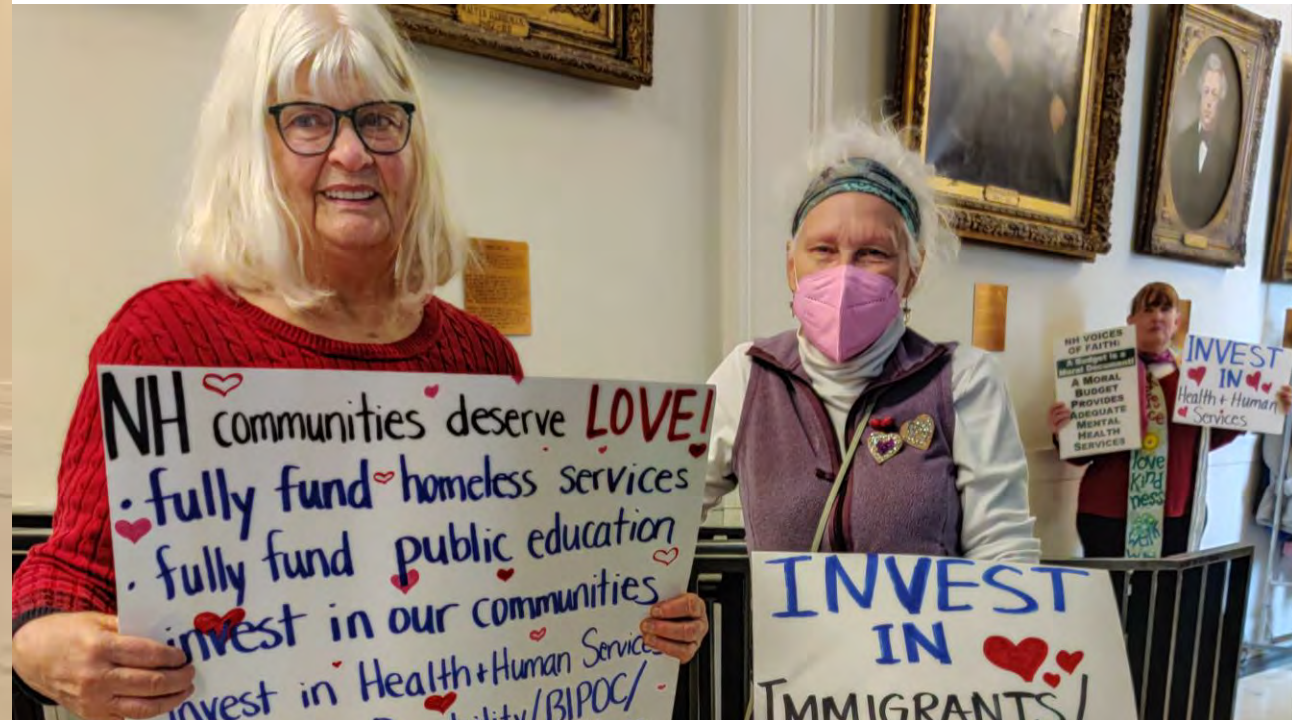 NH communities deserve LOVE!
· fully fund homeless services
· fully fund public education
invest in our communities
invest in Health + Human Services
/BIPOC/
INVEST
IN
IMMIGRANTS/
NH VOICES
OF FAITH:
A Budget is a
Moral Document!
A MORAL
BUDGET
PROVIDES
ADEQUATE
MENTAL
HEALTH
SERVICES
INVEST
IN
Health + Human
Services
love
kind
ness